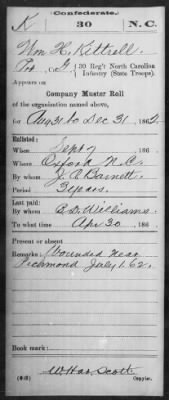 Confederate.
K 30 N.C.
Wm H. Kittrell.
Pvt, Co. G, 30 Reg't North Carolina
Infantry (State Troops).
Appears on
Company Muster Roll
of the organization named above,
for Aug 31 to Dec 31, 1862.
Enlisted:
When Sept 7, 186 .
Where Oxford N.C.
By whom J. A. Barnett
Period 3 years.
Last paid:
By whom B. D. Williams
To what time Apr 30, 186 .
Present or absent
Remarks: Wounded near
Richmond July 1. 62.
Book mark:
Scott
Copyist.